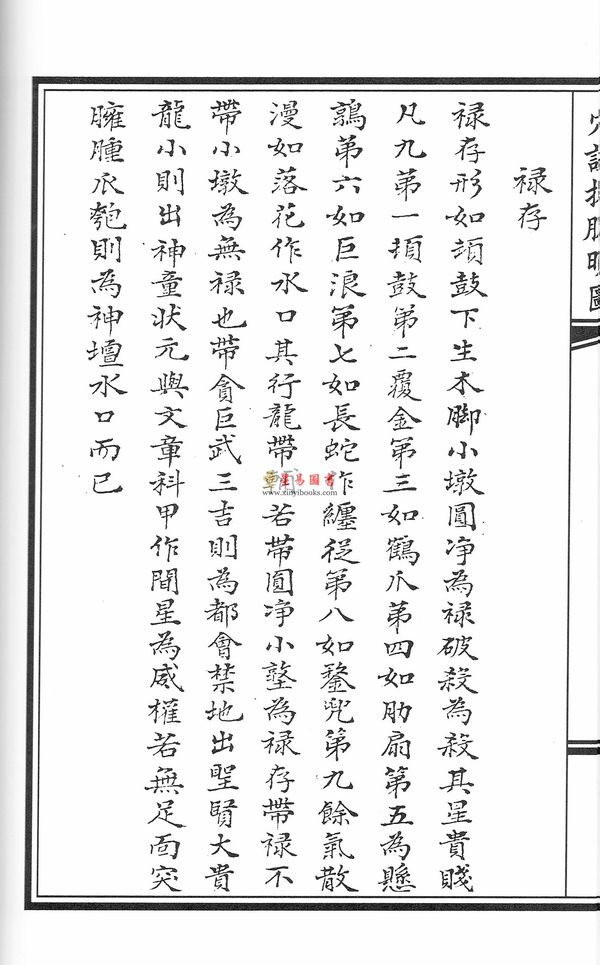 祿存
祿存形如頓鼓下生木脚小墩圓净為禄破殺為殺其星貴賤
凡九第一頓鼓第二覆金第三如鶴爪第四如肋扇第五為懸
鶉第六如巨浪第七如長蛇作纏從第八如鍪兜第九餘氣散
漫如落花作水口其行龍帶 若帶圓净小墪為禄存帶禄不
帶小墩為無禄也帶貪巨武三吉則為都會禁地出聖賢大貴
龍小則出神童狀元與文章科甲作間星為威權若無足面突
臃腫爪匏則為神壇水口而已
星易圖書
www.xinyibooks.com